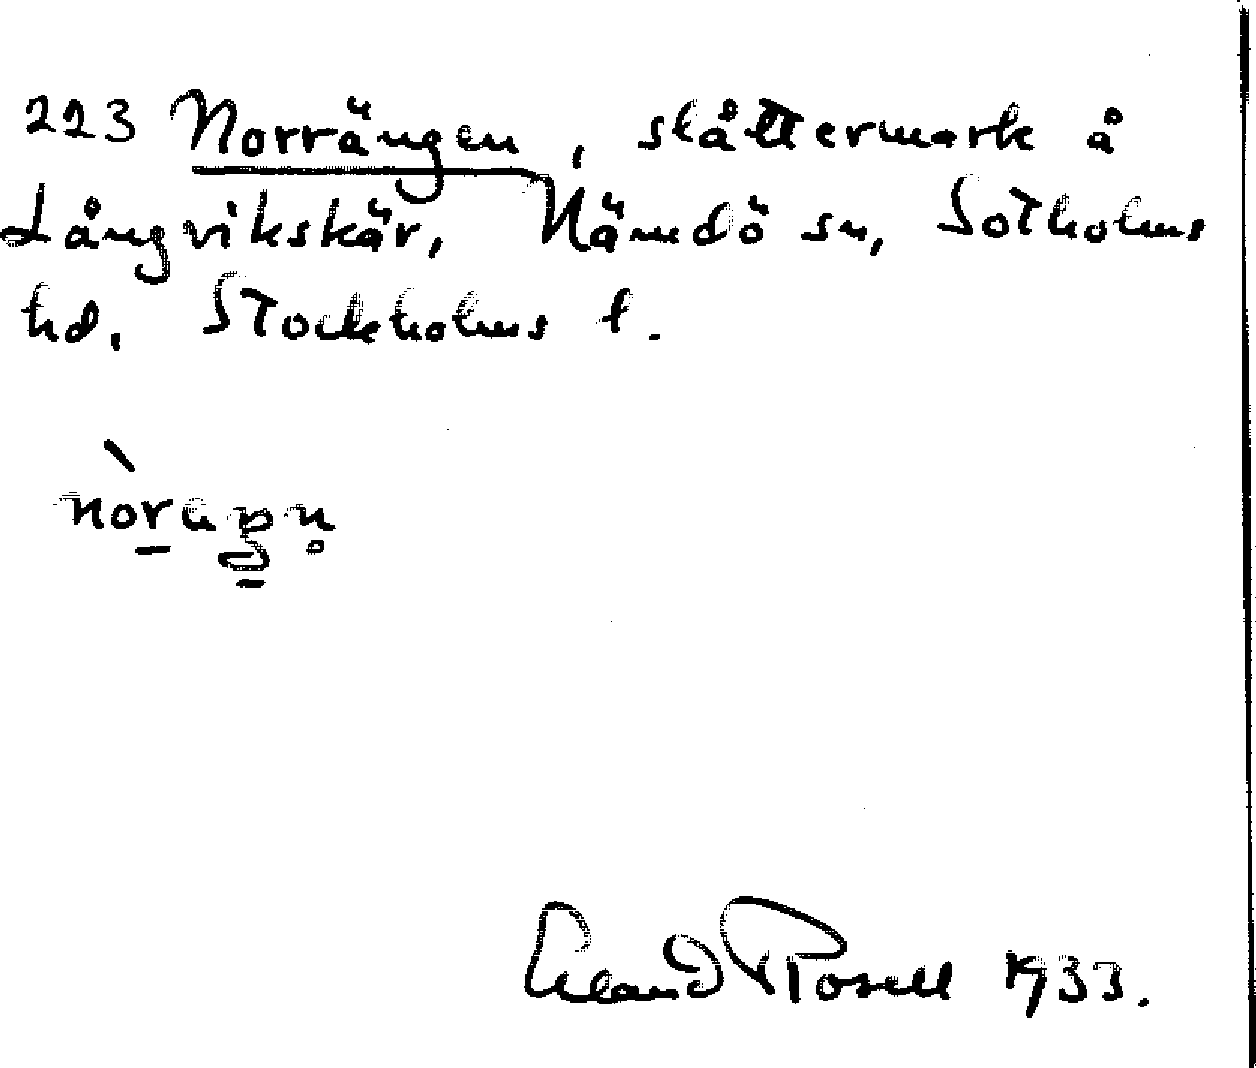 223 Norrängen, slåttermark å
Långvikskär, Nämdö sn, Sotholms
hd, Stockholms l.
Erland Rosell 1933.